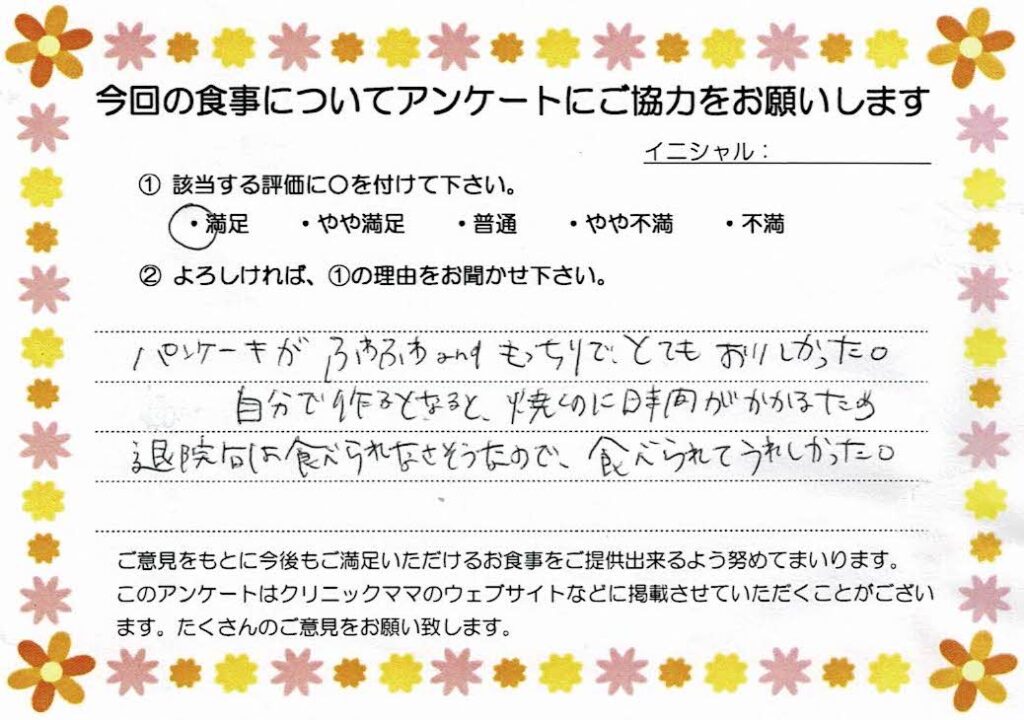 今回の食事についてアンケートにご協力をお願いします
イニシャル：
① 該当する評価に〇を付けて下さい。
・満足 ・やや満足 ・普通 ・やや不満 ・不満
② よろしければ、①の理由をお聞かせ下さい。
パンケーキが ふわふわand もっちりで、とても おいしかった。
自分で作るとなると、焼くのに時間がかかるため
退院後は食べられなさそうなので、食べられてうれしかった。
ご意見をもとに今後もご満足いただけるお食事をご提供出来るよう努めてまいります。
このアンケートはクリニックママのウェブサイトなどに掲載させていただくことがござい
ます。たくさんのご意見をお願い致します。